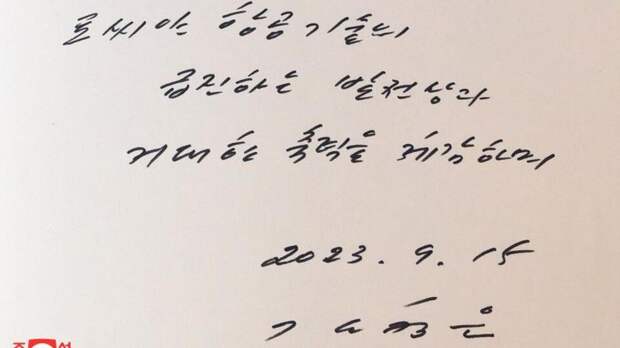 로씨야 항공기술의
급진하는 발전상과
거대한 축력을 체감하며
2023. 9. 15
김정은